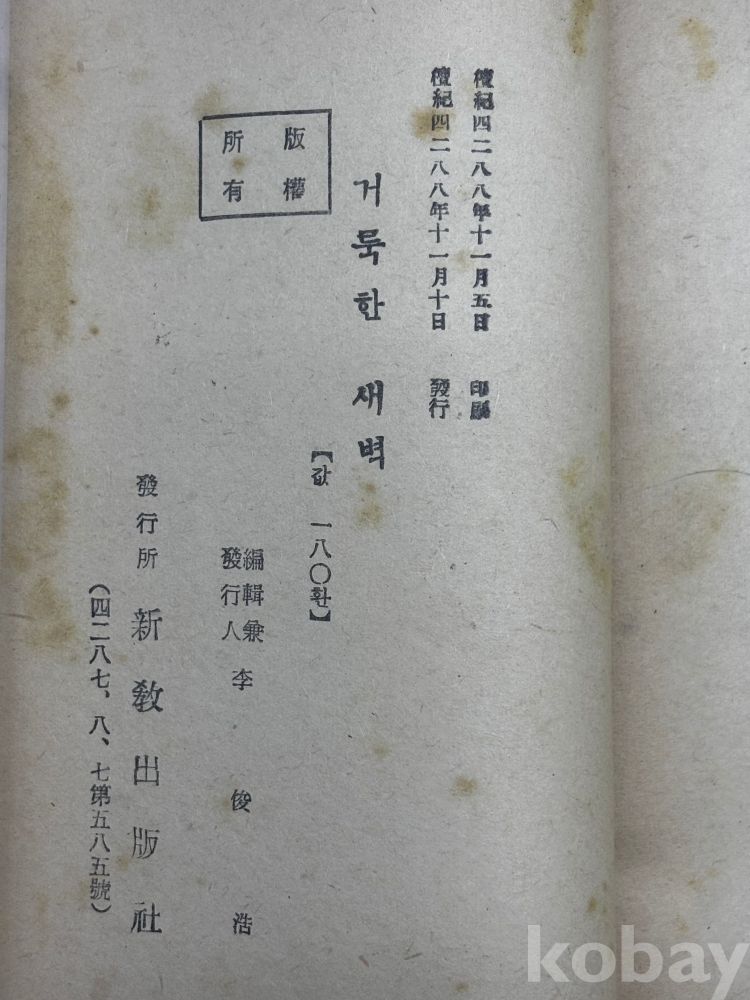 檀紀四二八八年十一月五日 印刷
檀紀四二八八年十一月十日 發行
거룩한 새벽
版權
所有
【값 一八〇환】
編輯兼
發行人 李俊浩
發行所 新敎出版社
(四二八七、八、七第五八五號)
kobay